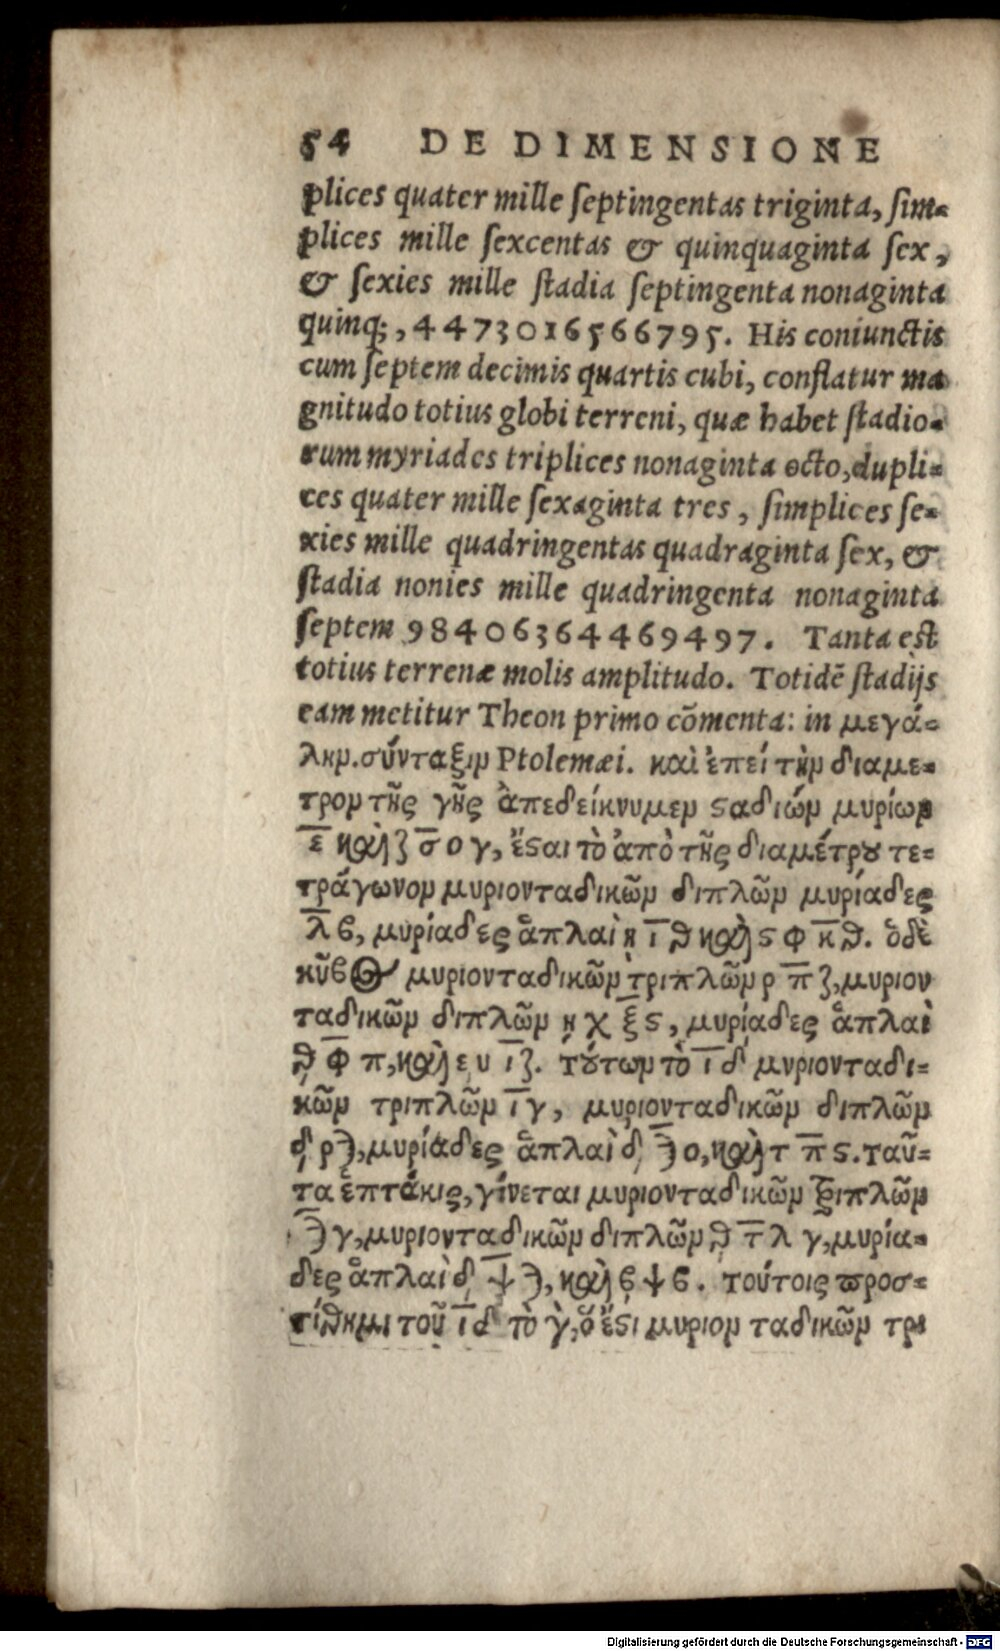 54 DE DIMENSIONE
plices quater mille ſeptingentas triginta, ſim-
plices mille ſexcentas & quinquaginta ſex,
& ſexies mille ſtadia ſeptingenta nonaginta
quinq;, 4473016566795. His coniunctis
cum ſeptem decimis quartis cubi, conflatur ma
gnitudo totius globi terreni, quæ habet ſtadio-
rum myriades triplices nonaginta octo, dupli-
ces quater mille ſexaginta tres, ſimplices ſe-
xies mille quadringentas quadraginta ſex, &
ſtadia nonies mille quadringenta nonaginta
ſeptem 98406364469497. Tanta est
totius terrenæ molis amplitudo. Totidē ſtadijs
eam metitur Theon primo cōmenta: in μεγά-
λην.σύνταξιν Ptolemæi. καὶ ἐπεί τὴν διαμε-
τρον τῆς γῆς ἀπεδείκνυμεν ϛαδιών μυρίων
η̅ καὶ ζ σ̅ ο γ, ἔϛαι τὸ ἀπὸ τῆς διαμέτρȣ τε-
τράγωνον μυριονταδικῶν διπλῶν μυρίαδες
λ̅ ϐ, μυρίαδες ἅπλαὶ η ι̅ ϑ καὶ ϛ φ κ̅ ϑ. ὅδὲ
κῦϐος μυριονταδικῶν τριπλῶν ρ π̅ ζ, μυριον
ταδικῶν διπλῶν η χ ξ̅ ϛ, μυρίαδες ἅπλαὶ
ϑ φ̅ π, καὶ ε υ ι̅ ζ. τȣ́των τὸ ι̅ δ μυριονταδι-
κῶν τριπλῶν ι̅ γ, μυριονταδικῶν διπλῶν
δ͵ ρ ϡ, μυρίαδες ἅπλαὶ δ͵ ϡ̅ ο, καὶ τ π̅ ϛ. ταῦ-
τα ἑπτάκις, γίνεται μυριονταδικῶν τριπλῶν
ϡ̅ γ, μυριονταδικῶν διπλῶν ϑ τ̅ λ γ, μυρία-
δες ἅπλαὶ δ͵ ψ̅ ϡ, καὶ ϐ ψ ϐ. τούτοις ϖροσ-
τίϑημι τοῦ ι̅ δ τὸ γ̀, ὅ ἔϛι μυριον ταδικῶν τρι
Digitalisierung gefördert durch die Deutsche Forschungsgemeinschaft - DFG